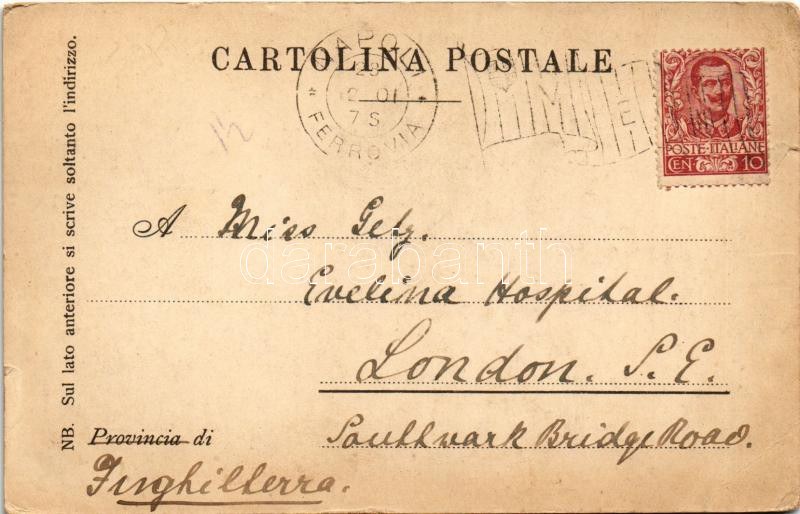 CARTOLINA POSTALE
NAPOLI
2 01
7 S
* FERROVIA *
POSTE ITALIANE
CEN 10
NB. Sul lato anteriore si scrive soltanto l'indirizzo.
A Miss Gelz.
darabanth
Evelina Hospital.
London. S.E.
Provincia di
Southwark Bridge Road.
Inghilterra.